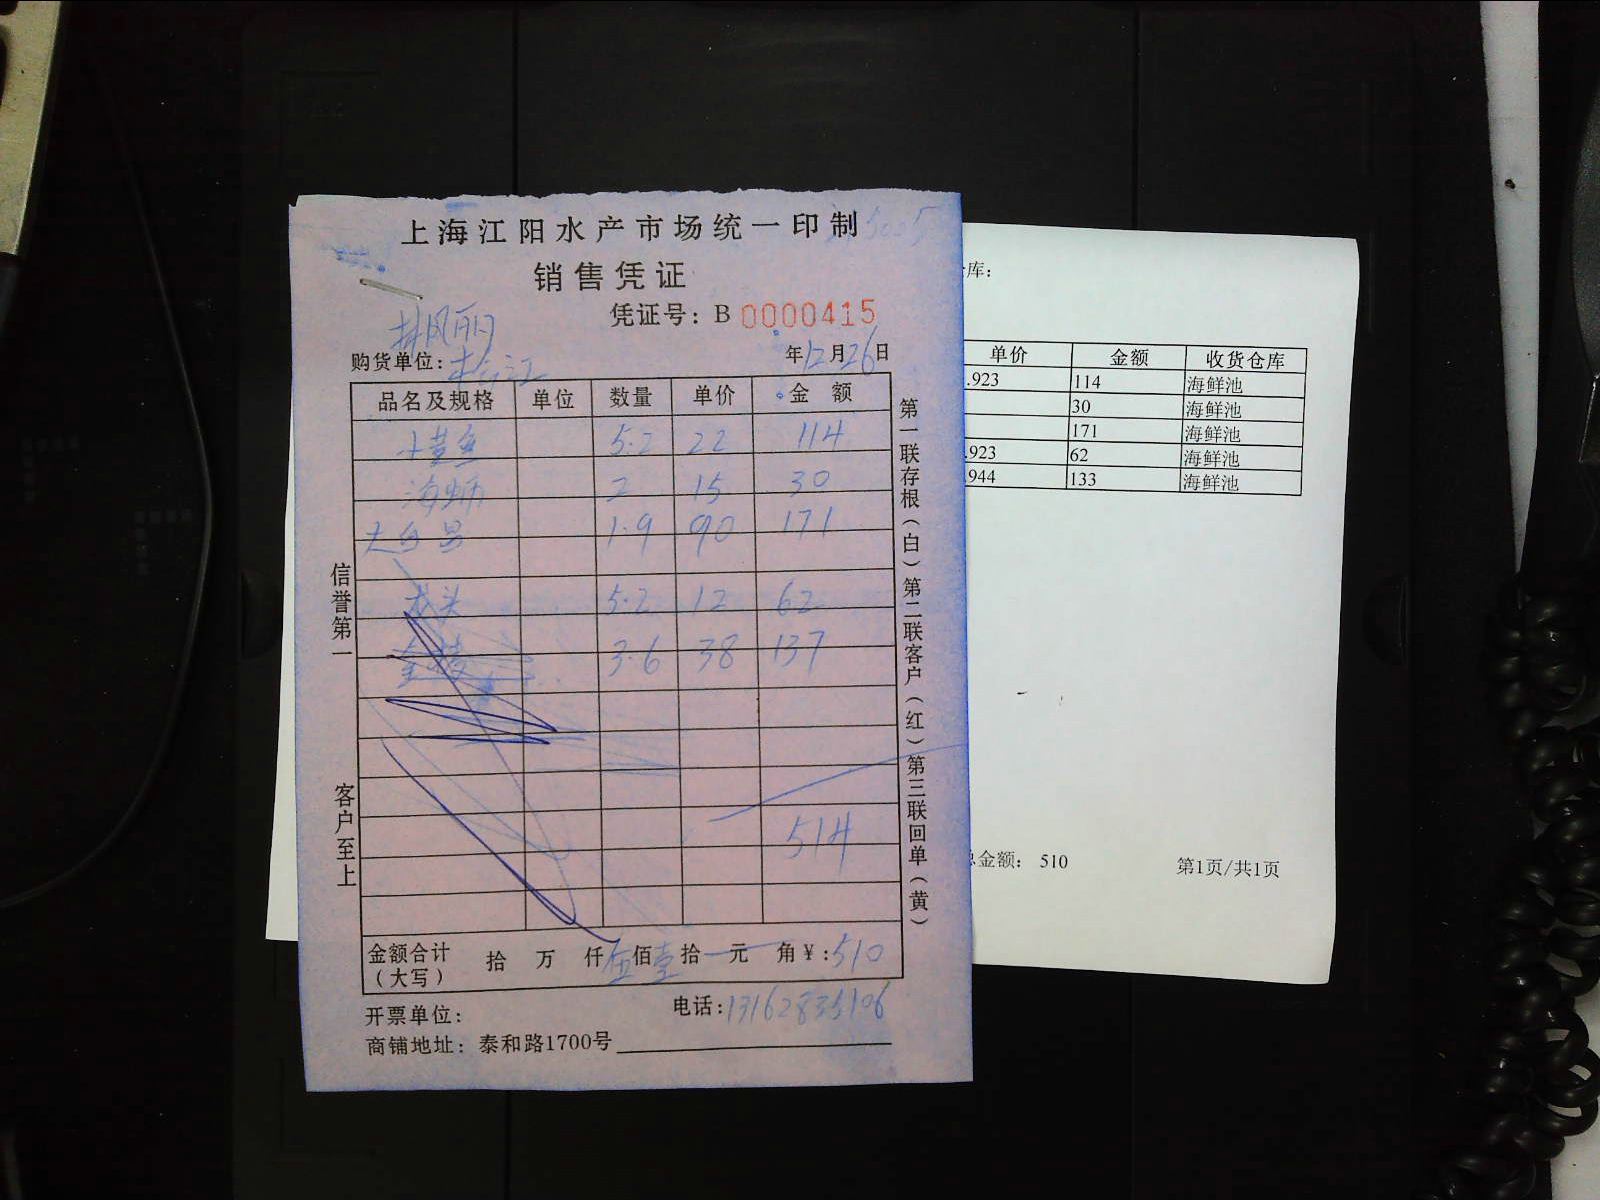 上海江阳水产市场统一印制
销售凭证
凭证号: B 0000415
购货单位:
年12月26日
品名及规格 单位 数量 单价 金额
小黄鱼 5.2 22 114
海蛳 2 15 30
1.9 90 171
龙头 5.2 12 62
3.6 38 137
514
金额合计(大写) 拾 万 仟伍佰壹拾一元 角¥:510
开票单位:
电话:13162835106
商铺地址: 泰和路1700号
信誉第一
客户至上
第一联存根(白)第二联客户(红)第三联回单(黄)
库:
单价 金额 收货仓库
.923 114 海鲜池
30 海鲜池
171 海鲜池
.923 62 海鲜池
944 133 海鲜池
总金额: 510
第1页/共1页